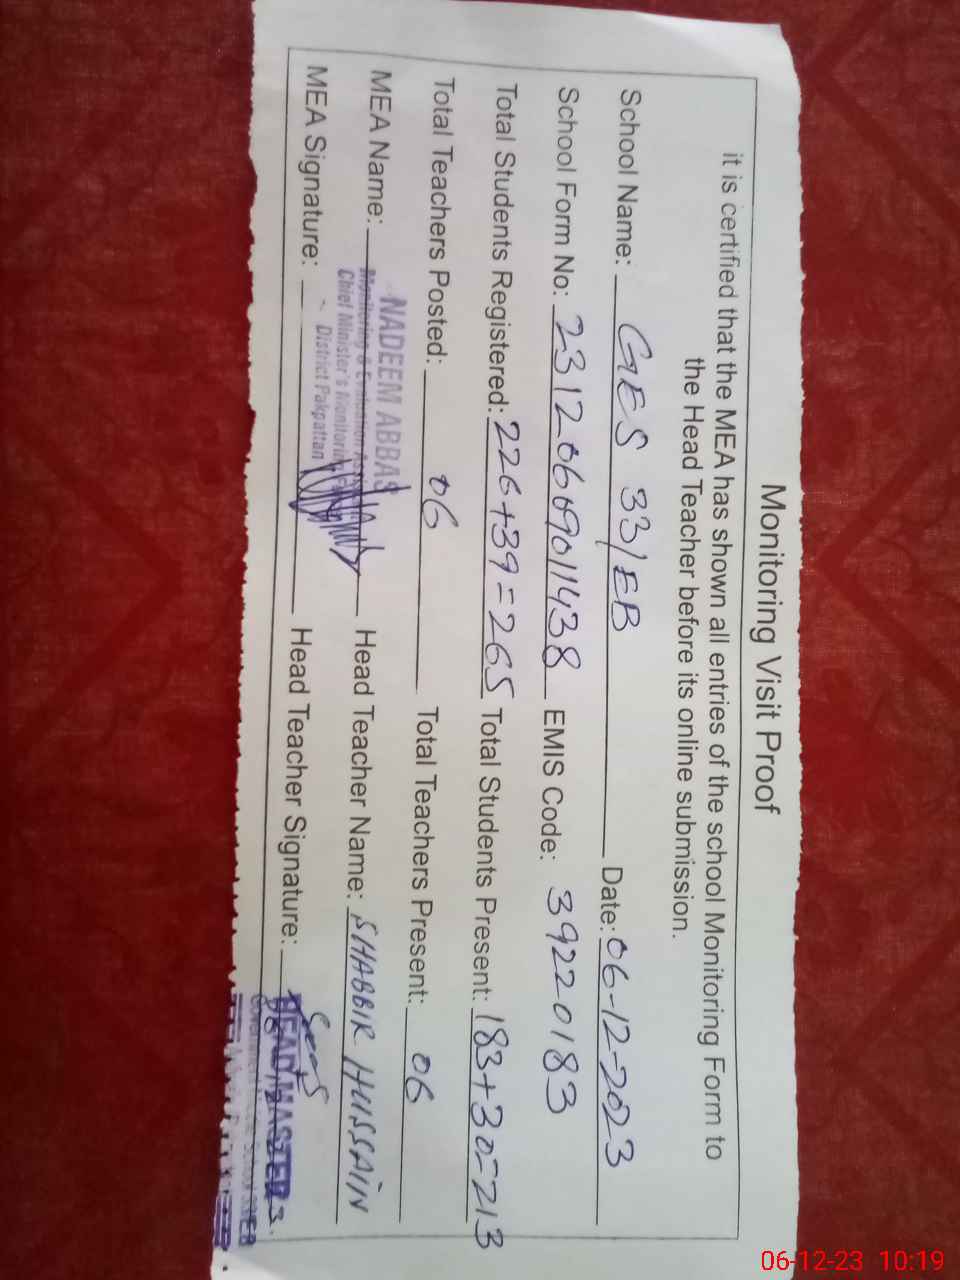 Monitoring Visit Proof
it is certified that the MEA has shown all entries of the school Monitoring Form to
the Head Teacher before its online submission.
School Name: GES 33/EB Date: 06-12-2023
School Form No: 23120609011438 EMIS Code: 39220183
Total Students Registered: 226+39=265 Total Students Present: 183+30=213
Total Teachers Posted: 06 Total Teachers Present: 06
MEA Name: NADEEM ABBAS Head Teacher Name: SHABBIR HUSSAIN
Monitoring & Evaluation
Chief Minister's Monitoring
District Pakpattan
MEA Signature: Head Teacher Signature:
HEADMASTER
06-12-23 10:19